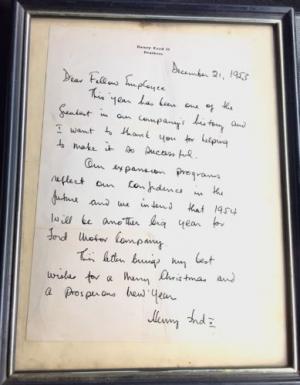 Henry Ford II
Dearborn
December 21, 1953
Dear Fellow Employee
This year has been one of the
Greatest in our company's history and
I want to thank you for helping
to make it so successful.
Our expansion programs
reflect our confidence in the
future and we intend that 1954
will be another big year for
Ford Motor Company.
This letter brings my best
wishes for a Merry Christmas and
a prosperous New Year
Henry Ford II